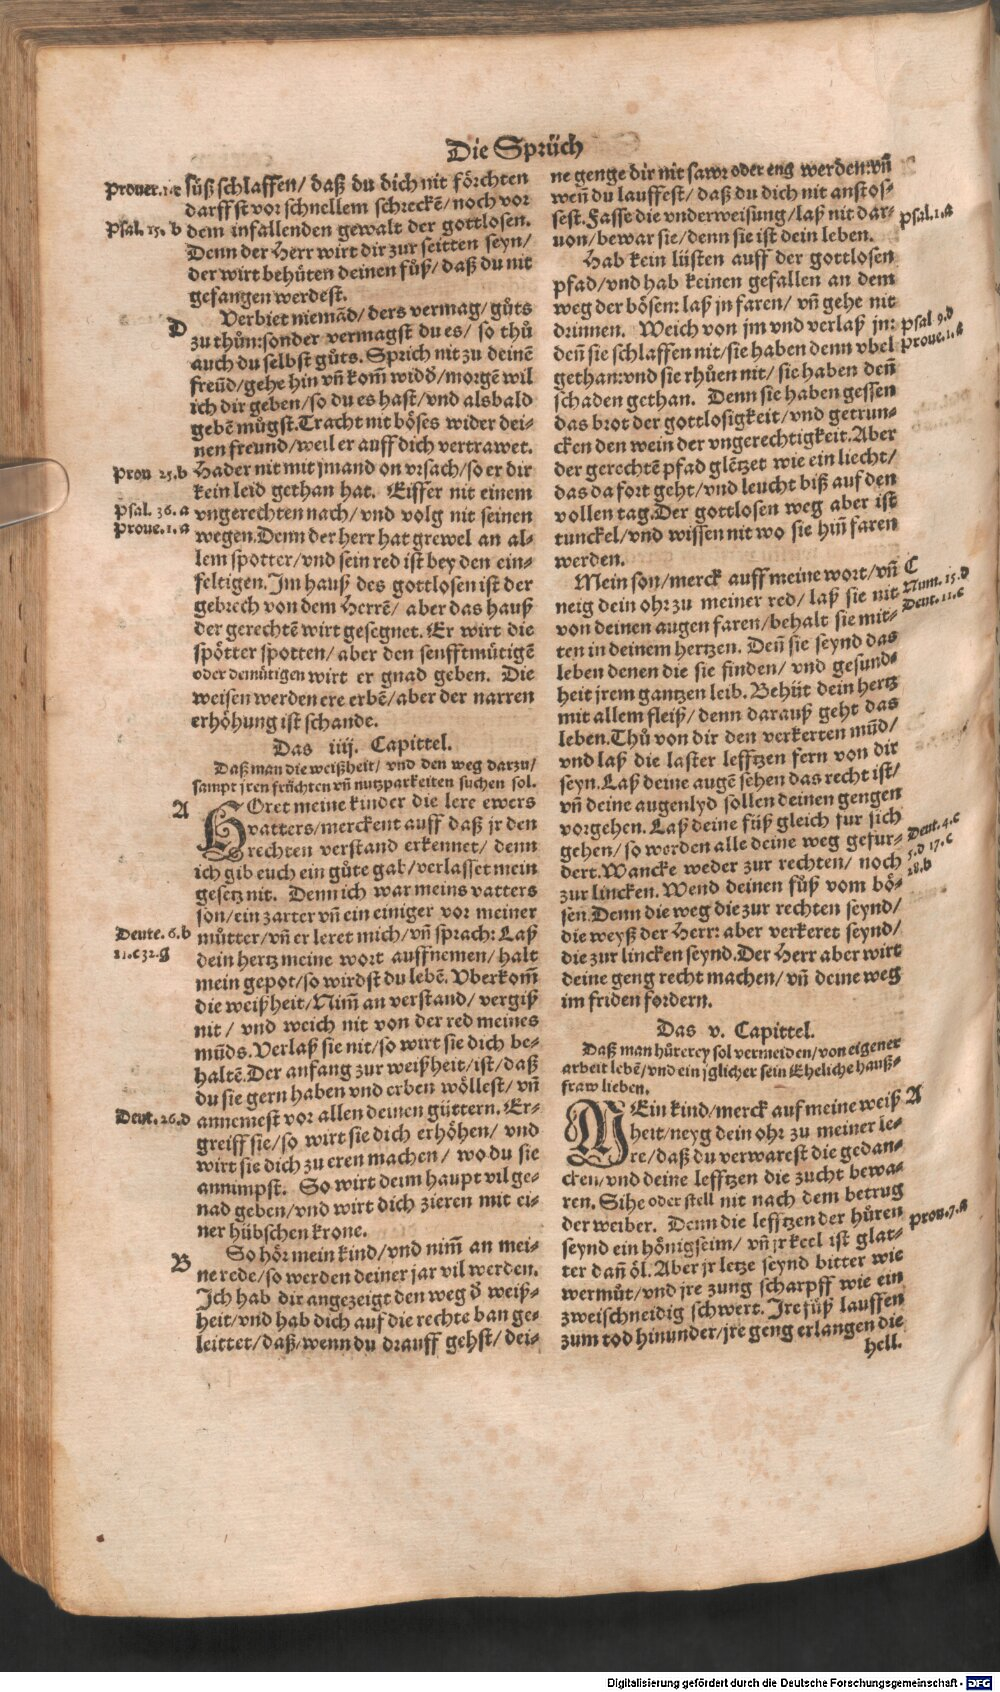 Die Sprüch
Prouer. 1. e
süß schlaffen/ daß du dich nit förchten
darffst vor schnellem schreckẽ/ noch vor
Psal. 15. b
dem infallenden gewalt der gottlosen.
Denn der Herr wirt dir zur seitten seyn/
der wirt behüten deinen fůß/ daß du nit
gefangen werdest.
D
Verbiet niemãd/ ders vermag/ gůts
zu thůn: sonder vermagst du es/ so thů
auch du selbst gůts. Sprich nit zu deinẽ
freũd/ gehe hin vñ kom̃ widď/ morgẽ wil
ich dir geben/ so du es hast/ vnd alsbald
gebẽ můgst. Tracht nit böses wider dei-
nen freund/ weil er auff dich vertrawet.
Prou 25. b
Hader nit mit jmand on vrsach/ so er dir
kein leid gethan hat. Eiffer nit einem
Psal. 36. a
vngerechten nach/ vnd volg nit seinen
Proue. 1. a
wegen. Denn der herr hat grewel an al-
lem spotter/ vnd sein red ist bey den ein-
feltigen. Im hauß des gottlosen ist der
gebrech von dem Herrẽ/ aber das hauß
der gerechtẽ wirt gesegnet. Er wirt die
spötter spotten/ aber den senfftmütigẽ
oder demütigen wirt er gnad geben. Die
weisen werden ere erbẽ/ aber der narren
erhöhung ist schande.
Das iiij. Capittel.
Daß man die weißheit/ vnd den weg darzu/
sampt jren früchten vñ nutzparkeiten suchen sol.
A
HOret meine kinder die lere ewers
vatters/ merckent auff daß jr den
rechten verstand erkennet/ denn
ich gib euch ein gůte gab/ verlasset mein
gesetz nit. Denn ich war meins vatters
son/ ein zarter vñ ein einiger vor meiner
Deute. 6. b
můtter/ vñ er leret mich/ vñ sprach: Laß
11. c 32. g
dein hertz meine wort auffnemen/ halt
mein gepot/ so wirdst du lebẽ. Vberkom̃
die weißheit/ Nim̃ an verstand/ vergiß
nit/ vnd weich nit von der red meines
mũds. Verlaß sie nit/ so wirt sie dich be-
haltẽ. Der anfang zur weißheit/ ist/ daß
du sie gern haben vnd erben wöllest/ vñ
Deut. 26. d
annemest vor allen deinen güttern. Er-
greiff sie/ so wirt sie dich erhöhen/ vnd
wirt sie dich zu eren machen/ wo du sie
annimpst. So wirt deim haupt vil ge-
nad geben/ vnd wirt dich zieren mit ei-
ner hübschen krone.
B
So hör mein kind/ vnd nim̃ an mei-
ne rede/ so werden deiner jar vil werden.
Ich hab dir angezeigt den weg ď weiß-
heit/ vnd hab dich auf die rechte ban ge-
leittet/ daß/ wenn du drauff gehst/ dei-
ne genge dir nit sawr oder eng werden: vñ
weñ du lauffest/ daß du dich nit anstos-
sest. Fasse die vnderweisung/ laß nit dar-
Psal. 1. a
uon/ bewar sie/ denn sie ist dein leben.
Hab kein lüsten auff der gottlosen
pfad/ vnd hab keinen gefallen an dem
weg der bösen: laß jn faren/ vñ gehe nit
drinnen. Weich von jm vnd verlaß jn:
Psal 9. d
deñ sie schlaffen nit/ sie haben denn vbel
Proue. 1. a
gethan: vnd sie rhůen nit/ sie haben deñ
schaden gethan. Denn sie haben gessen
das brot der gottlosigkeit/ vnd getrun-
cken den wein der vngerechtigkeit. Aber
der gerechtẽ pfad glẽtzet wie ein liecht/
das da fort geht/ vnd leucht biß auf den
vollen tag. Der gottlosen weg aber ist
tunckel/ vnd wissen nit wo sie hiñ faren
werden.
C
Mein son/ merck auff meine wort/ vñ
Num. 15. d
neig dein ohr zu meiner red/ laß sie nit
Deut. 11. c
von deinen augen faren/ behalt sie mit-
ten in deinem hertzen. Deñ sie seynd das
leben denen die sie finden/ vnd gesund-
heit jrem gantzen leib. Behüt dein hertz
mit allem fleiß/ denn darauß geht das
leben. Thů von dir den verkerten mũd/
vnd laß die laster lefftzen fern von dir
seyn. Laß deine augẽ sehen das recht ist/
vñ deine augenlyd sollen deinen gengen
vorgehen. Laß deine füß gleich fur sich
Deut. 4. c
gehen/ so werden alle deine weg gefur-
5. d 17. c
dert. Wancke weder zur rechten/ noch
28. b
zur lincken. Wend deinen fůß vom bö-
sen. Denn die weg die zur rechten seynd/
die weyß der Herr: aber verkeret seynd/
die zur lincken seynd. Der Herr aber wirt
deine geng recht machen/ vñ deine weg
im friden fordern.
Das v. Capittel.
Daß man hůrerey sol vermeiden/ von eigener
arbeit lebẽ/ vnd ein jglicher sein Eheliche hauß-
fraw lieben.
A
MEin kind/ merck auf meine weiß
heit/ neyg dein ohr zu meiner le-
re/ daß du verwarest die gedan-
cken/ vnd deine lefftzen die zucht bewa-
ren. Sihe oder stell nit nach dem betrug
der weiber. Denn die lefftzen der hůren
Prou. 7. a
seynd ein hönigseim/ vñ jr keel ist glat-
ter dañ öl. Aber jr letze seynd bitter wie
wermůt/ vnd jre zung scharpff wie ein
zweischneidig schwert. Jre füß lauffen
zum tod hinunder/ jre geng erlangen die
hell.
Digitalisierung gefördert durch die Deutsche Forschungsgemeinschaft - DFG